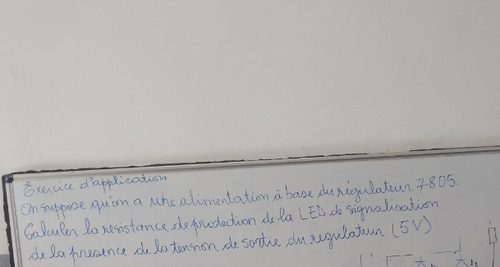 Exercice d'application
On suppose qu'on a une alimentation à base du régulateur 7805.
Calculer la resistance de protection de la LED de signalisation
de la presence de la tension de sortie du regulateur (5V)